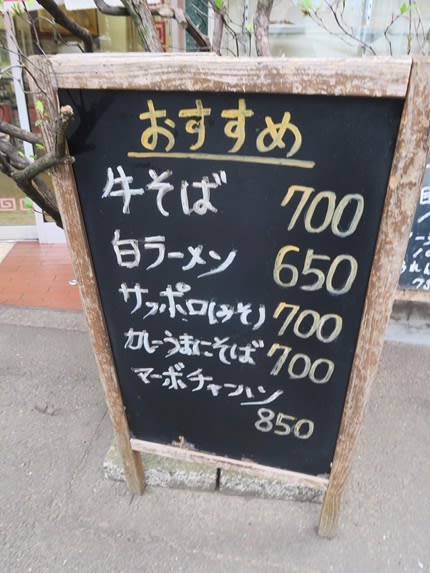 おすすめ
牛そば 700
白ラーメン 650
サッポロ(みそ) 700
カレーうまにそば 700
マーボチャンハン
850